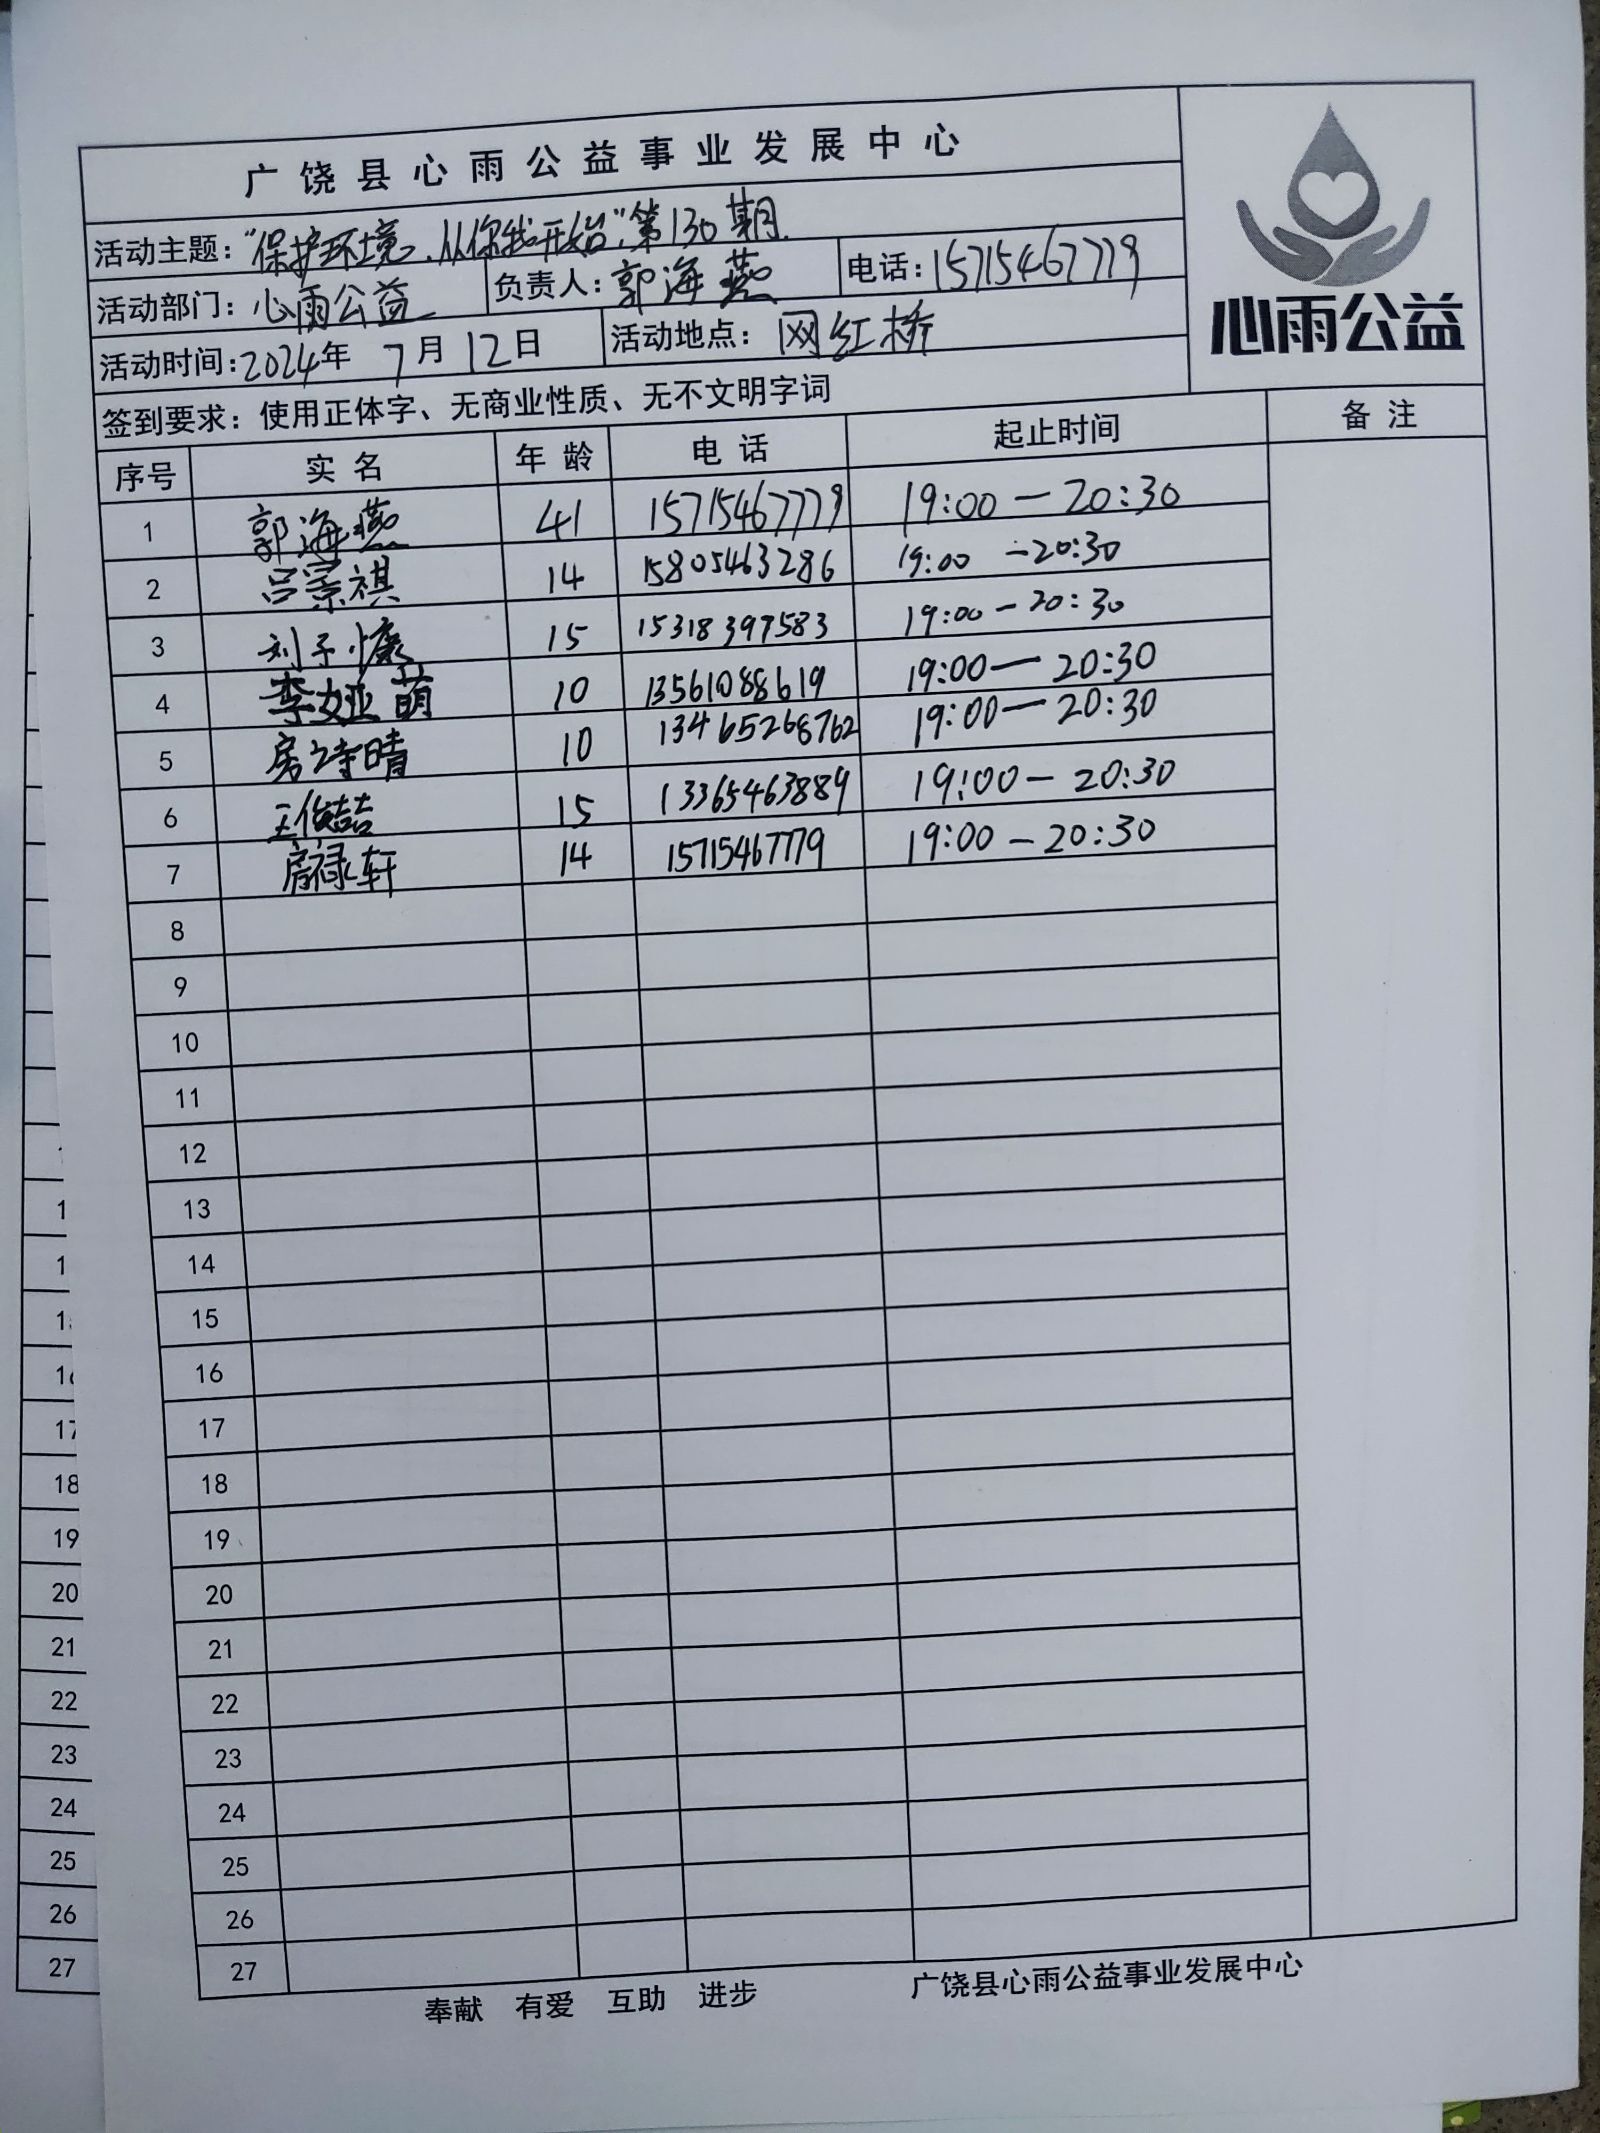 广饶县心雨公益事业发展中心
活动主题：“保护环境、从你我开始”第130期.
活动部门：心雨公益 负责人：郭海燕 电话：15715467779
活动时间：2024年 7月 12日 活动地点：网红桥
心雨公益
签到要求：使用正体字、无商业性质、无不文明字词
序号 实名 年龄 电话 起止时间 备注
1 郭海燕 41 15715467779 19:00—20:30
2 吕崇祺 14 15805463286 19:00—20:30
3 刘子慷 15 15318397583 19:00—20:30
4 李娅萌 10 13561088619 19:00—20:30
5 房诗晴 10 13465268762 19:00—20:30
6 王俊喆 15 13365463889 19:00—20:30
7 房禄轩 14 15715467779 19:00—20:30
8
9
10
11
12
13
14
15
16
17
18
19
20
21
22
23
24
25
26
27
奉献 有爱 互助 进步 广饶县心雨公益事业发展中心
17
18
19
20
21
22
23
24
25
26
27